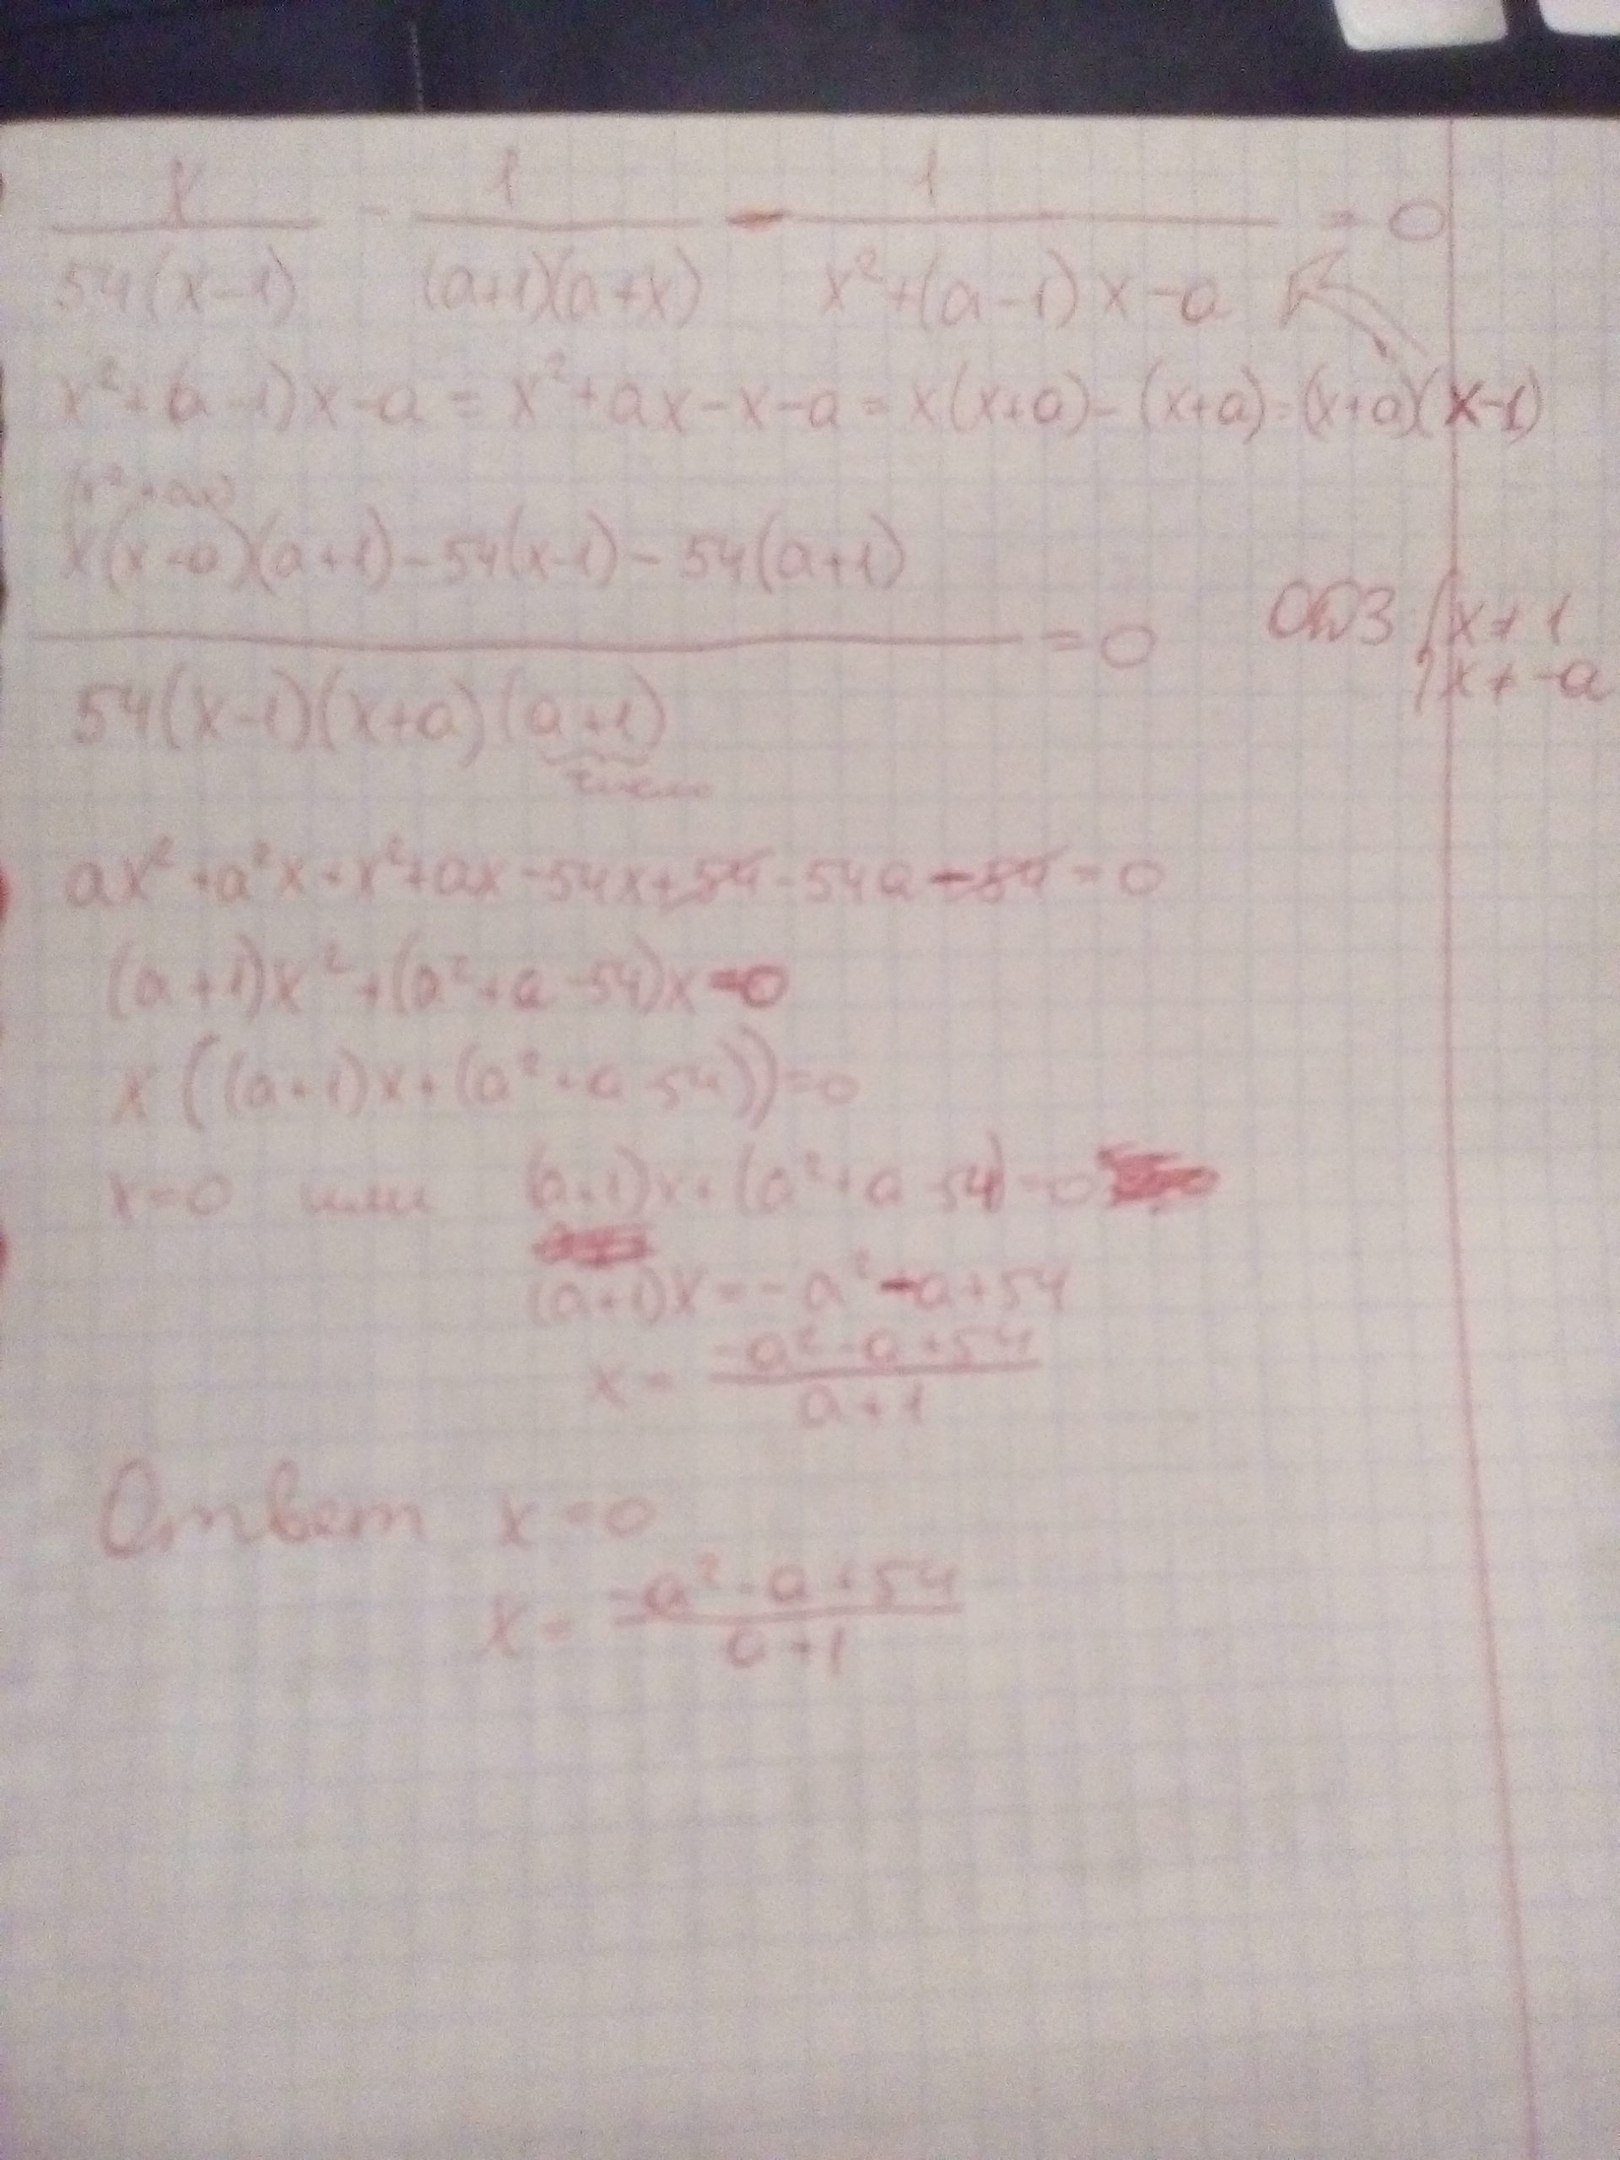 x/(54(x-1)) - 1/((a+1)(a+x)) - 1/(x²+(a-1)x-a) = 0
x²+(a-1)x-a = x²+ax-x-a = x(x+a)-(x+a)=(x+a)(x-1)
(x²+ax)
(x(x+a)(a+1)-54(x-1)-54(a+1))/(54(x-1)(x+a)(a+1)) = 0
число
ОДЗ { x≠1
x≠-a
ax²+a²x+x²+ax-54x+54-54a-54=0
(a+1)x²+(a²+a-54)x=0
x((a+1)x+(a²+a-54))=0
x=0 или (a+1)x+(a²+a-54)=0
(a+1)x=-a²-a+54
x = (-a²-a+54)/(a+1)
Ответ x=0
x = (-a²-a+54)/(a+1)